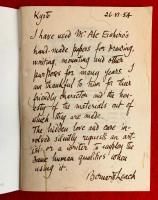 Kyoto 26 VI 54
I have used Mr Abe Eishiro's
hand-made papers for drawing,
writing, mounting and other
purposes for many years. I
am thankful to him for their
friendly character and the honesty
of the materials out of
which they are made.
The hidden love and care involved
silently requests an artist
or a writer to employ the
same human qualities when
using it.
Bernard Leach